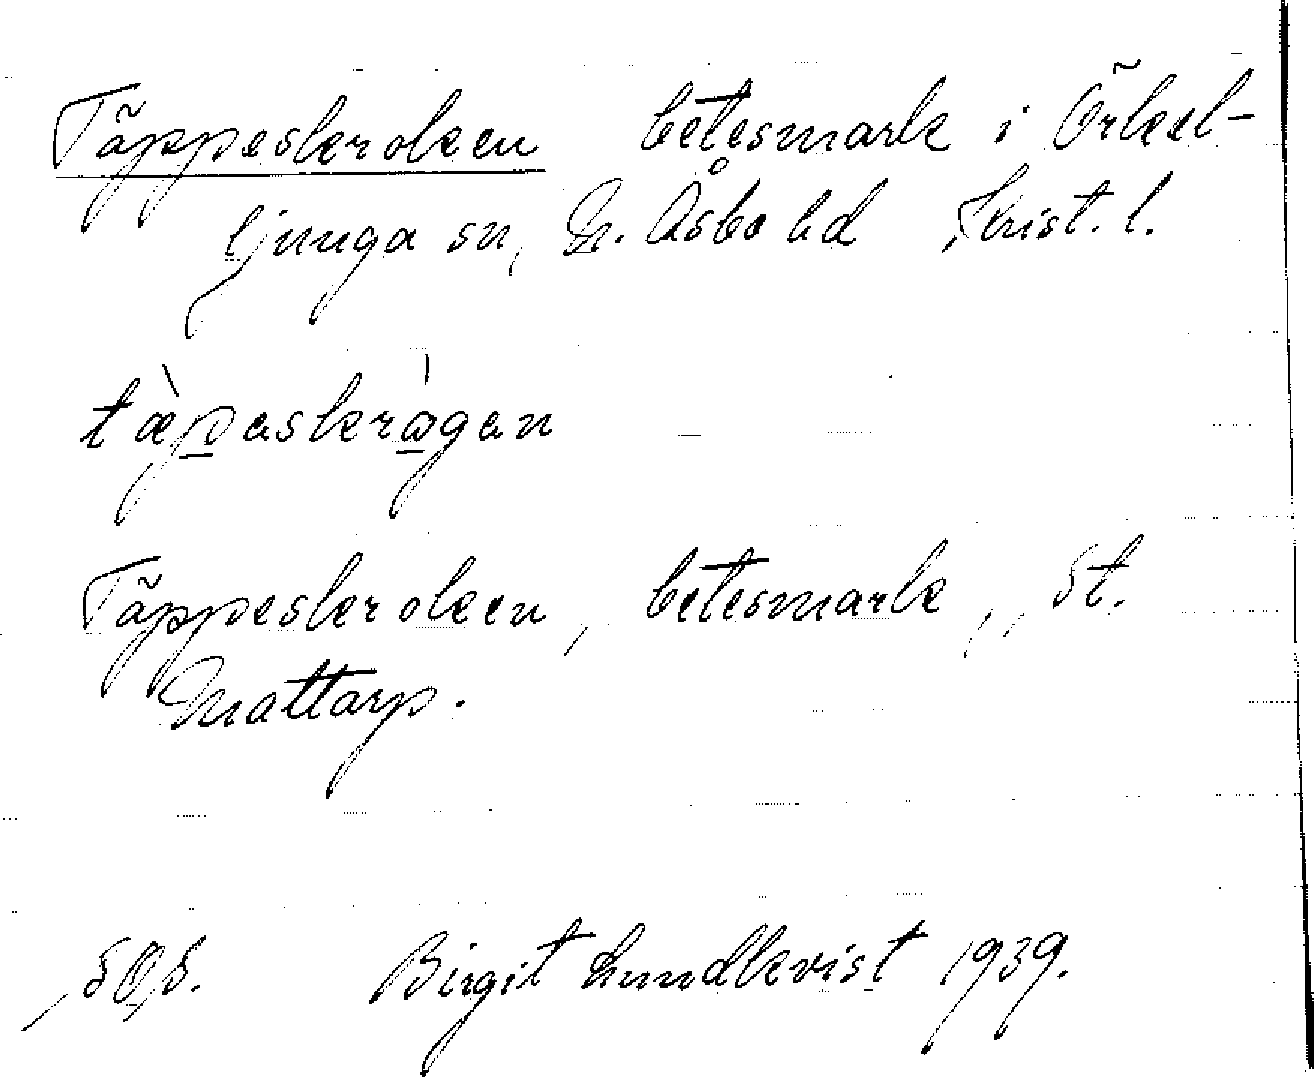 Täppeskroken betesmark i Örkel-
ljunga sn, N. Åsbo hd Krist. l.
tæ̀paskrågan
Täppeskroken, betesmark, St.
Mattarp.
Birgit Lundkvist 1939.